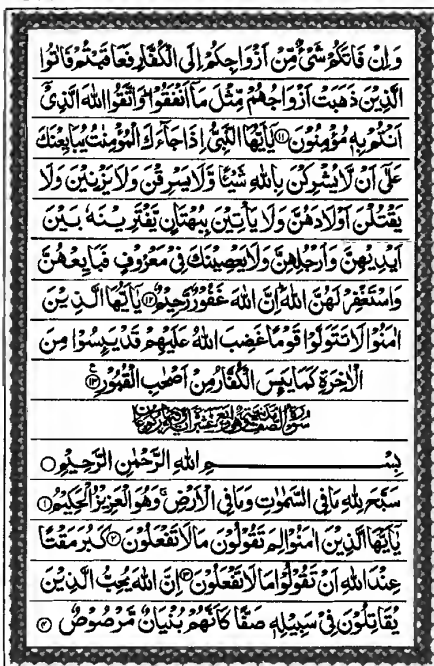 وَاِنْ فَاتَكُمْ شَیْءٌ مِّنْ اَزْوَاجِكُمْ اِلَی الْكُفَّارِ فَعَاقَبْتُمْ فَاٰتُوا
الَّذِیْنَ ذَهَبَتْ اَزْوَاجُهُمْ مِّثْلَ مَاۤ اَنْفَقُوْا ؕ وَاتَّقُوا اللّٰهَ الَّذِیْۤ
اَنْتُمْ بِهٖ مُؤْمِنُوْنَ ۝۱۱ یٰۤاَیُّهَا النَّبِیُّ اِذَا جَآءَكَ الْمُؤْمِنٰتُ یُبَایِعْنَكَ
عَلٰۤی اَنْ لَّا یُشْرِكْنَ بِاللّٰهِ شَیْئًا وَّلَا یَسْرِقْنَ وَلَا یَزْنِیْنَ وَلَا
یَقْتُلْنَ اَوْلَادَهُنَّ وَلَا یَاْتِیْنَ بِبُهْتَانٍ یَّفْتَرِیْنَهٗ بَیْنَ
اَیْدِیْهِنَّ وَاَرْجُلِهِنَّ وَلَا یَعْصِیْنَكَ فِیْ مَعْرُوْفٍ فَبَایِعْهُنَّ
وَاسْتَغْفِرْ لَهُنَّ اللّٰهَ ؕ اِنَّ اللّٰهَ غَفُوْرٌ رَّحِیْمٌ ۝۱۲ یٰۤاَیُّهَا الَّذِیْنَ
اٰمَنُوْا لَا تَتَوَلَّوْا قَوْمًا غَضِبَ اللّٰهُ عَلَیْهِمْ قَدْ یَىِٕسُوْا مِنَ
الْاٰخِرَةِ كَمَا یَىِٕسَ الْكُفَّارُ مِنْ اَصْحٰبِ الْقُبُوْرِ ۝۱۳
بِسْمِ اللّٰهِ الرَّحْمٰنِ الرَّحِیْمِ ۝
سَبَّحَ لِلّٰهِ مَا فِی السَّمٰوٰتِ وَمَا فِی الْاَرْضِ ۚ وَهُوَ الْعَزِیْزُ الْحَكِیْمُ ۝۱
یٰۤاَیُّهَا الَّذِیْنَ اٰمَنُوْا لِمَ تَقُوْلُوْنَ مَا لَا تَفْعَلُوْنَ ۝۲ كَبُرَ مَقْتًا
عِنْدَ اللّٰهِ اَنْ تَقُوْلُوْا مَا لَا تَفْعَلُوْنَ ۝۳ اِنَّ اللّٰهَ یُحِبُّ الَّذِیْنَ
یُقَاتِلُوْنَ فِیْ سَبِیْلِهٖ صَفًّا كَاَنَّهُمْ بُنْیَانٌ مَّرْصُوْصٌ ۝۴